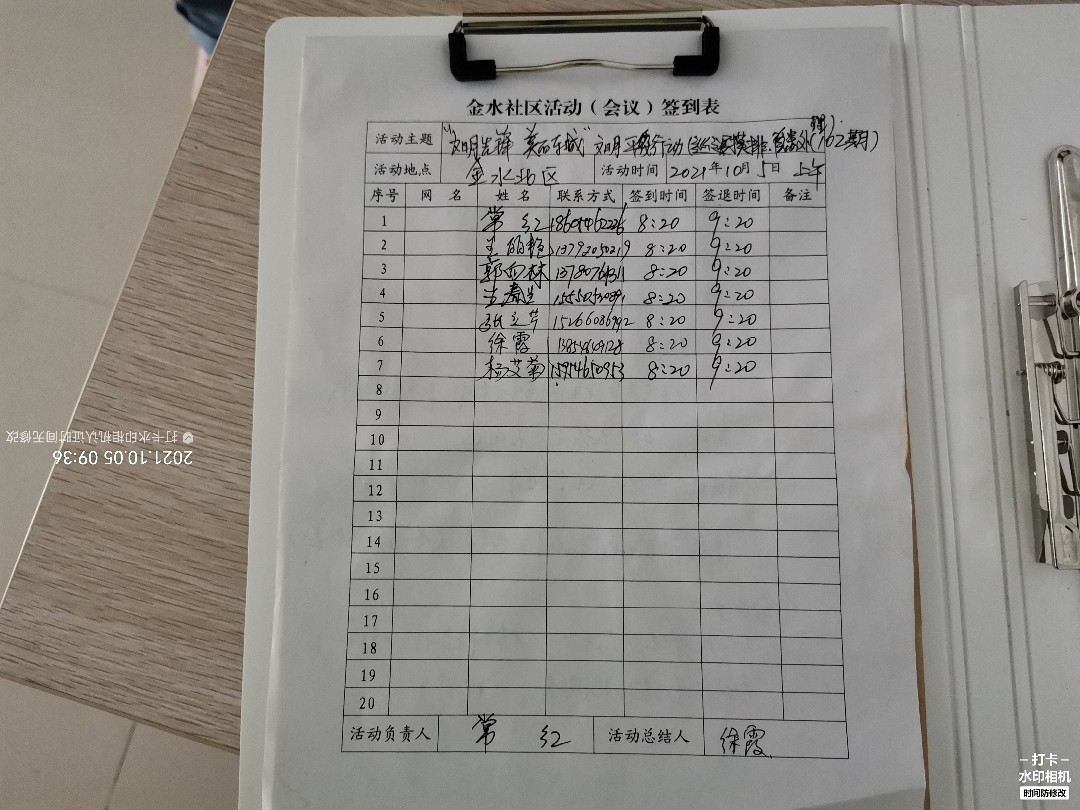 金水社区活动（会议）签到表
活动主题 "文明先锋 美丽东城" 文明 行动 (162期)
活动地点 金水社区 活动时间 2021年10月5日 上午
序号 网 名 姓 名 联系方式 签到时间 签退时间 备注
1 常 红 8:20 9:20
2 王 艳 8:20 9:20
3 郭 林 8:20 9:20
4 王春兰 8:20 9:20
5 张立芹 15266086992 8:20 9:20
6 徐霞 8:20 9:20
7 杨艾菊 15914650953 8:20 9:20
8
9
10
11
12
13
14
15
16
17
18
19
20
活动负责人 常 红 活动总结人 徐霞
2021.10.05 09:36
打卡水印相机认证时间无修改
打卡
水印相机
时间防修改